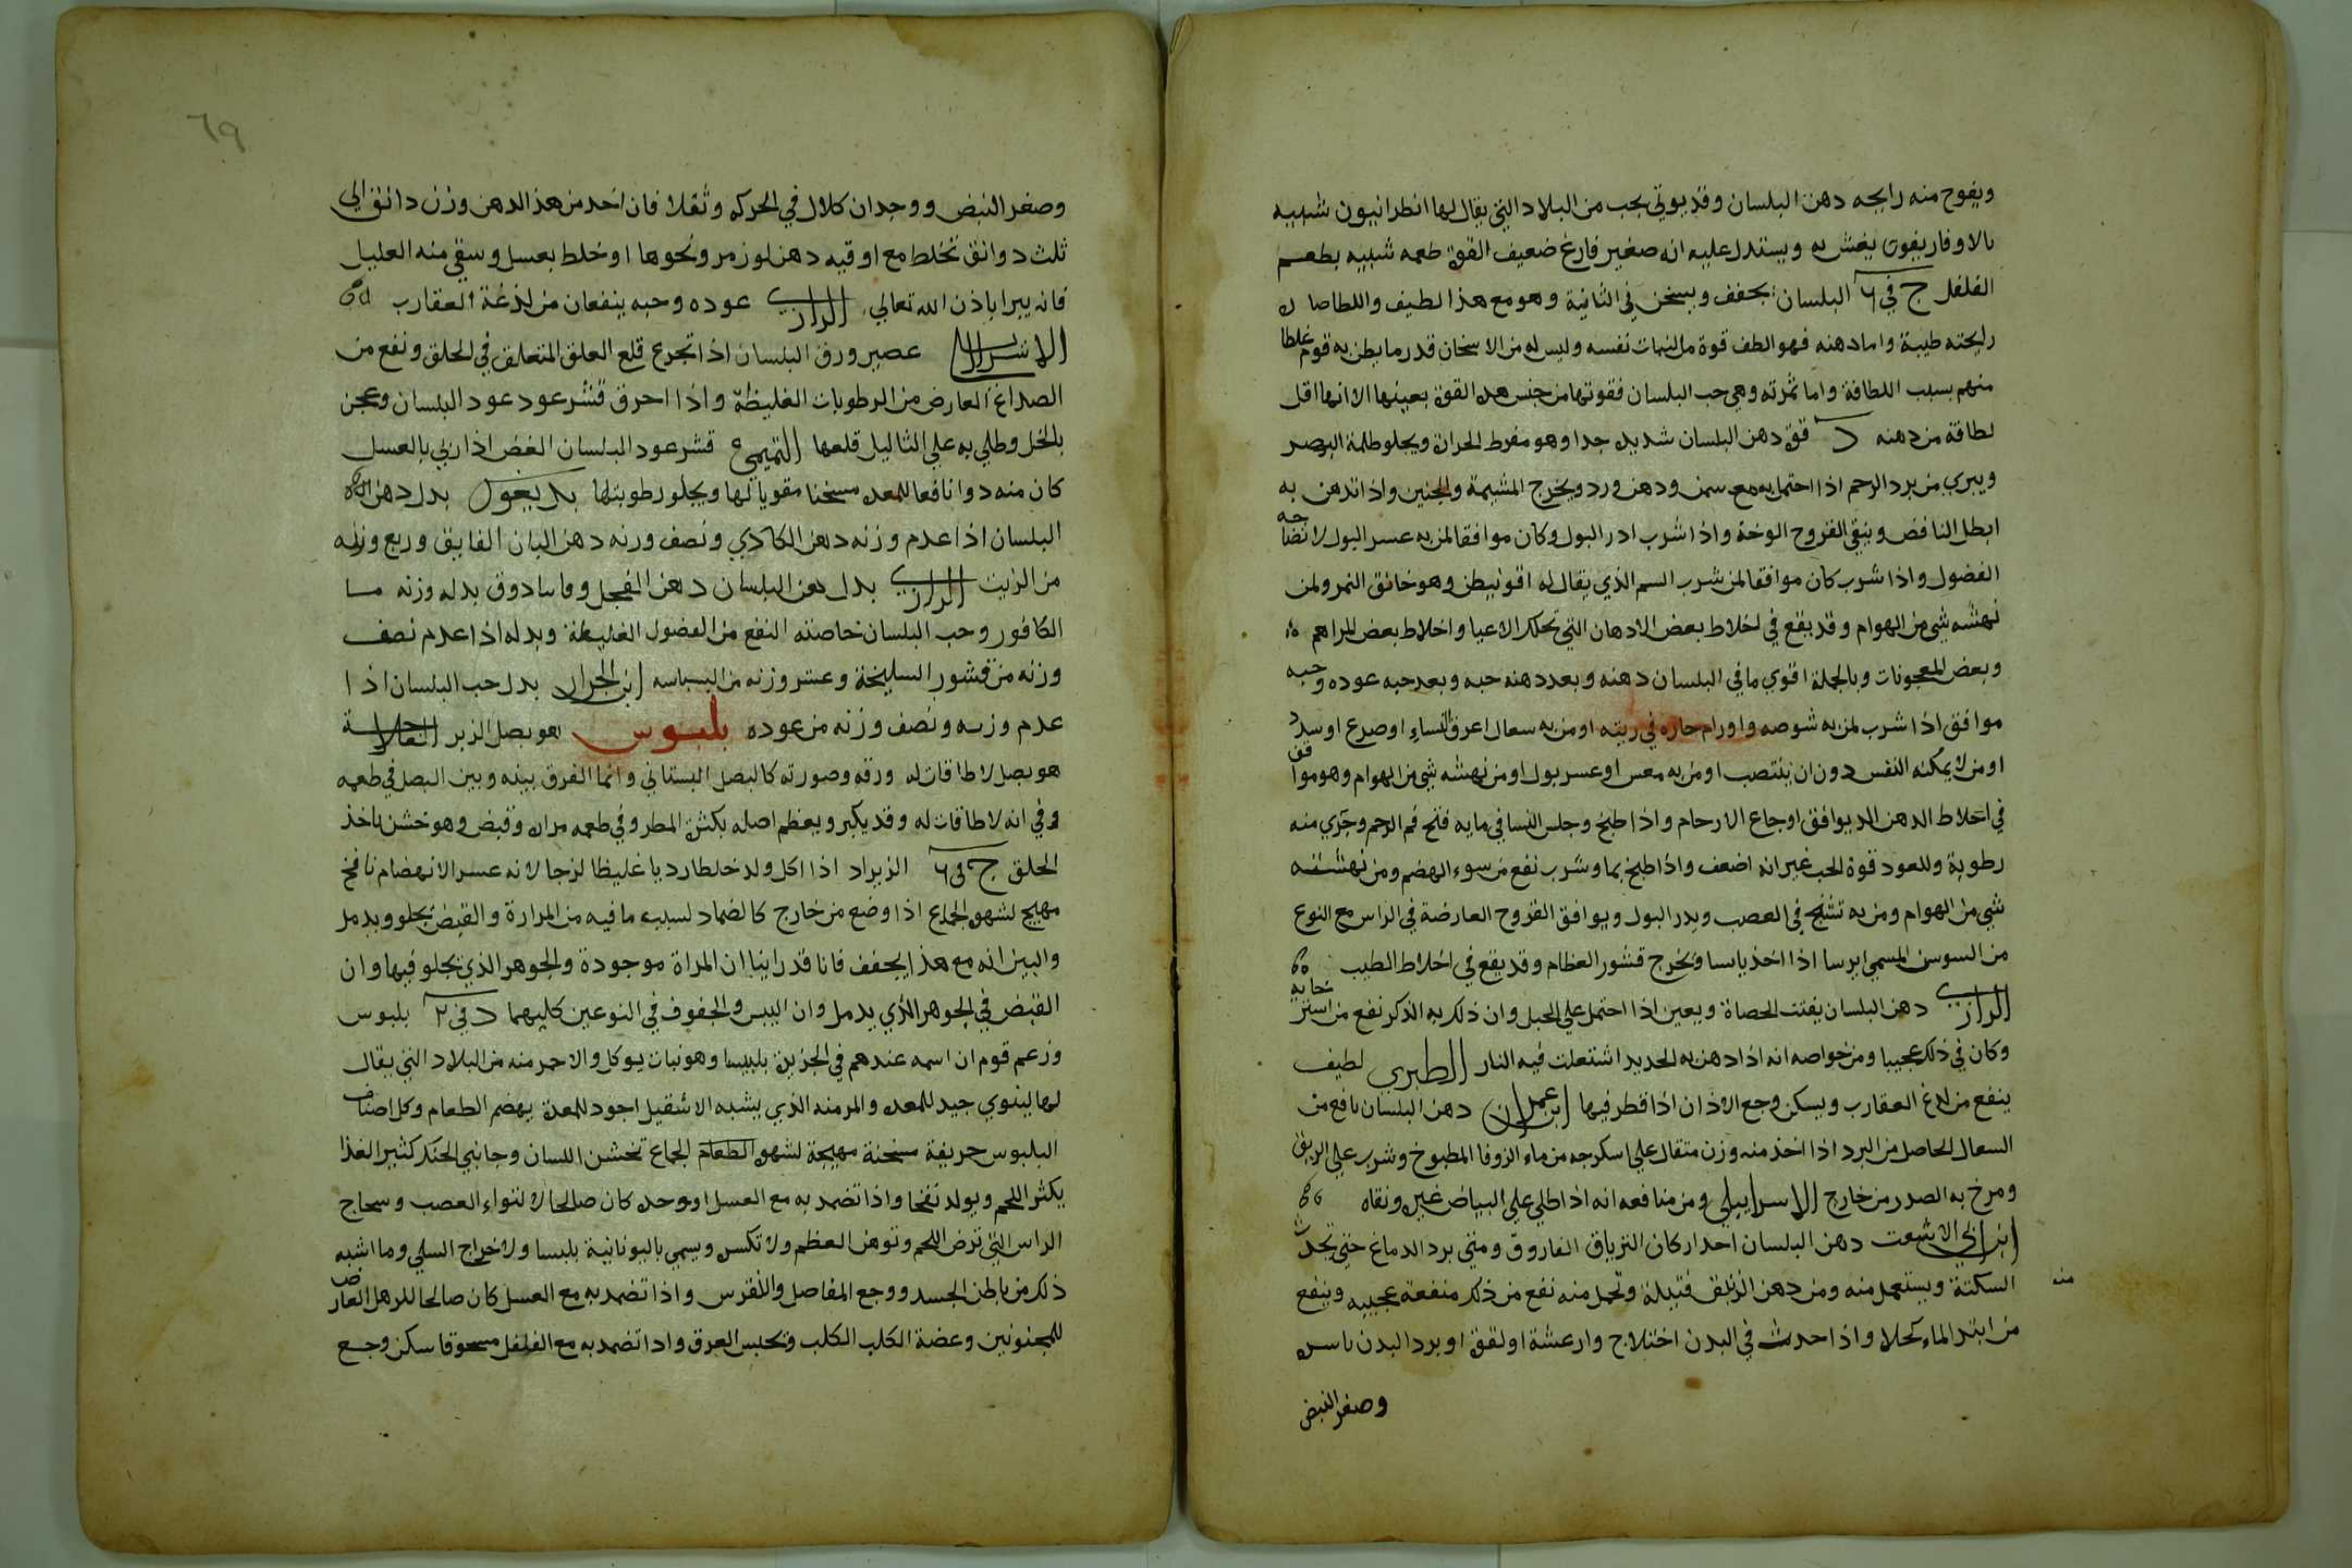 ويفوح منه رايحه دهن البلسان وقد يوتي بحب من البلاد التي يقال لها انطرانيون شبيه
بالاوفاريقون يغش به ويستدل عليه انه صغير فارغ ضعيف القوة طعمه شبيه بطعم
الفلفل ج في ٦ البلسان يجفف ويسخن في الثانية وهو مع هذا لطيف واللطاصار
رايحته طيبة واما دهنه فهو الطف قوة من النبات نفسه وليس له من الاسخان قدر ما يظن به قوم غلطا
منهم بسبب اللطافة واما ثمرته وهي حب البلسان فقوتها من جنس هذه القوة بعينها الا انها اقل
لطافة من دهنه د قوة دهن البلسان شديد جدا وهو مفرط الحرارة ويجلو ظلمة البصر
ويبري من برد الرحم اذا احتمل به مع سمن ودهن ورد ويخرج المشيمة والجنين واذا تدهن به
ابطل النافض وينقي القروح الوخة واذا شرب ادر البول وكان موافقا لمن به عسر البول لانضاجه
الفضول واذا شرب كان موافقا لمن شرب السم الذي يقال له اقونيطن وهو خانق النمر ولمن
نهشه شي من الهوام وقد يقع في اخلاط بعض الادهان التي تحلل الاعيا واخلاط بعض المراهم
وبعض المعجونات وبالجملة اقوي ما في البلسان دهنه وبعد دهنه حبه وبعد حبه عوده وحبه
موافق اذا شرب لمن به شوصه واورام حاره في ريته او من به سعال اعرق النساء او صرع او سدد
او من لا يمكنه النفس دون ان ينتصب او من به مغس او عسر بول او من نهشه شي من الهوام وهو موافق
في اخلاط الدهن الد يوافق اوجاع الارحام واذا طبخ وجلس النسا في مايه فتح فم الرحم وجري منه
رطوبة وللعود قوة الحب غير انه اضعف واذا طبخ بما وشرب نفع من سوء الهضم ومن نهشته
شي من الهوام ومن به تشنج في العصب ويدر البول ويوافق القروح العارضة في الراس مع النوع
من السوسن المسمي ايرسا اذا اخذ يابسا ويخرج قشور العظام وقد يقع في اخلاط الطيب
الرازي دهن البلسان يفتت الحصاة ويعين اذا احتمل علي الحبل وان ذلك به الذكر نفع من استرخايه
وكان في ذلك عجيبا ومن خواصه انه اذا دهن به الحديد اشتعلت فيه النار الطبري لطيف
ينفع من لدغ العقارب ويسكن وجع الاذان اذا قطر فيها ابن عمران دهن البلسان نافع من
السعال الحاصل من البرد اذا اخذ منه وزن مثقال علي اسكرجه من ماء الزوفا المطبوخ وشرب علي الريق
ومرخ به الصدر من خارج الاسرايلي ومن منافعه انه اذا طلي علي البياض غيره ونقاه
ابن ابي الاشعت دهن البلسان احد اركان الترياق الفاروق ومتي برد الدماغ حتي تحدث
السكتة ويستعمل منه ومن دهن الزنبق فتيلة وتحمل منه نفع من ذكر منفعة عجيبه وينفع
منه
من ابتدا الماء كحلا واذا احدث في البدن اختلاج وارعشة او لقوة او برد البدن باسره
وصغر النبض
٦٩
وصغر النبض ووجدان كلال في الحركه وثقلا فان اخذ من هذ الدهن وزن دانق الي
ثلث دوانق تخلط مع اوقيه دهن لوز مر ونحوها او خلط بعسل وسقي منه العليل
فانه يبرا باذن الله تعالي الرازي عوده وحبه ينفعان من لذغة العقارب
عصير ورق البلسان اذا تجرع قلع العلق المتعلق في الحلق ونفع من
الصداع العارض من الرطوبات الغليظة واذا احرق قشر عود عود البلسان وعجن
بالخل وطلي به علي الثاليل قلعها التميمي قشر عود البلسان الغض اذا ربي بالعسل
كان منه دوا نافعا للمعده مسخنا مقويا لها ويجلو رطوبتها بديغورس بدل دهن
البلسان اذا عدم وزنه دهن الكادي ونصف ورنه دهن البان الفايق وربع وزنه
من الزيت الرازي بدل دهن البلسان دهن الفجل وماسادوق بدله وزنه ما
الكافور وحب البلسان خاصته النفع من الفضول الغليظة وبدله اذا عدم نصف
وزنه من قشور السليخة وعشر وزنه من البسباسه ابن الجزار بدل حب البلسان اذا
عدم وزنه ونصف وزنه من عوده بلبوس هو بصل الزير
هو بصل لا طاقات له ورقه وصورته كالبصل البستاني وانما الفرق بينه وبين البصل في طعمه
وفي انه لا طاقات له وقد يكبر ويعظم اصله بكثرة المطر وفي طعمه مراره وقبض وهو خشن ياخذ
الحلق ج في ٦ الزيراد اذا اكل ولد خلطا رديا غليظا لزجا لانه عسر الانهضام نافخ
مهيج لشهوة الجماع اذا وضع من خارج كالضماد لسبب ما فيه من المرارة والقبض يجلو ويدمل
والبين انه مع هذا يجفف فانا قد راينا ان المراة موجودة والجوهر الذي يجلو فيها وان
القبض في الجوهر الذي يدمل وان اليبس والجفوف في النوعين كليهما د في ٢ بلبوس
وزعم قوم ان اسمه عندهم في الجزيرة بلبيسا وهو نبات يوكل والاحمر منه من البلاد التي يقال
لها لينوي جيد للمعده والمر منه الذي يشبه الاشقيل اجود للمعدة يهضم الطعام وكل اصناف
البلبوس حريفة مسخنة مهيجة لشهوة الطعام الجماع تخشن اللسان وجانبي الحنك كثير الغذا
يكثر اللحم ويولد نفخا واذا تضمد به مع العسل او وحده كان صالحا لالتواء العصب وسحاج
الراس التي ترض اللحم وتوهن العظم ولا تكسره ويسمي باليونانية بلبسا ولاخراج السلي وما اشبه
ذلك من باطن الجسد ووجع المفاصل والنقرس واذا تضمد به مع العسل كان صالحا للرهل العارض
للمجنونين وعضة الكلب الكلب وتحبس العرق واذا تضمد به مع الفلفل مسحوقا سكن وجع